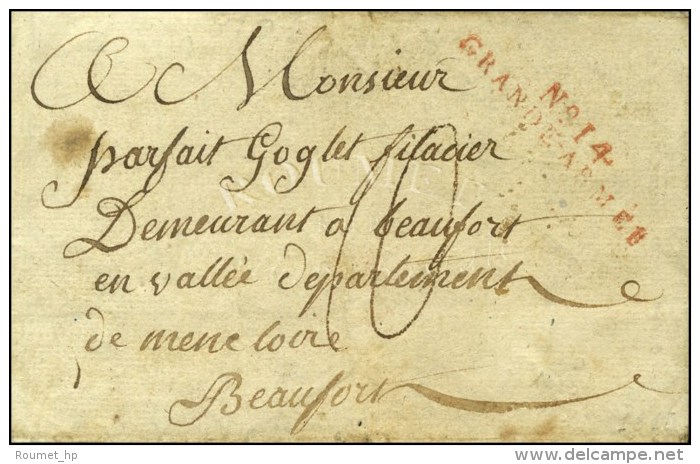 A Monsieur
No. 14
GRANDE-ARMÉE
parfait Goglet filacier
ROUMET
Demeurant a beaufort
en vallée departement
de mene loire
Beaufort
Roumet_hp
www.delcampe.net